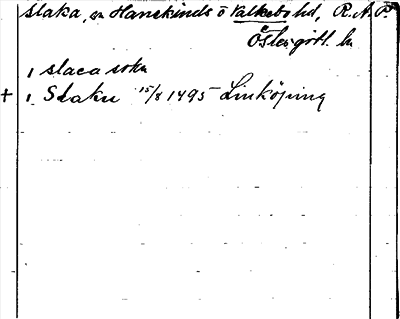 Slaka, sn Hanekinds o Valkebo hd, R.A.P.
Östergötl. ln
i slaca sokn
+ i Slaku 15/8 1495 Linköping